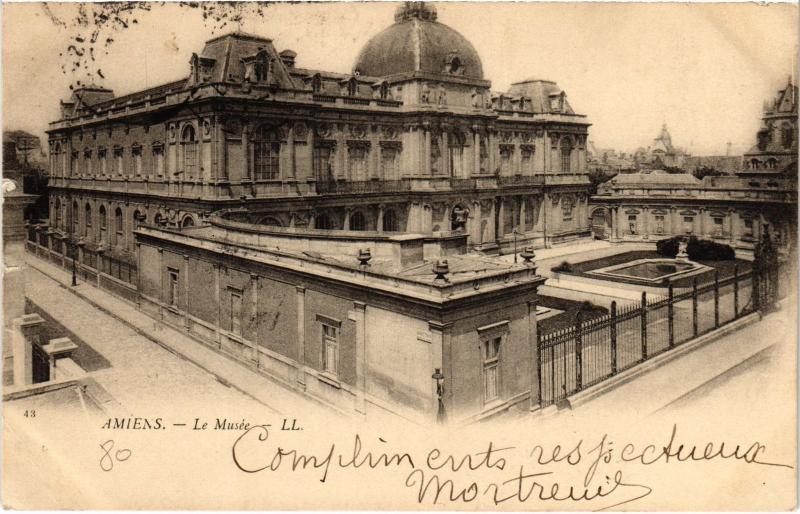 43
AMIENS. — Le Musée — LL.
80
Compliments respectueux
Montreuil